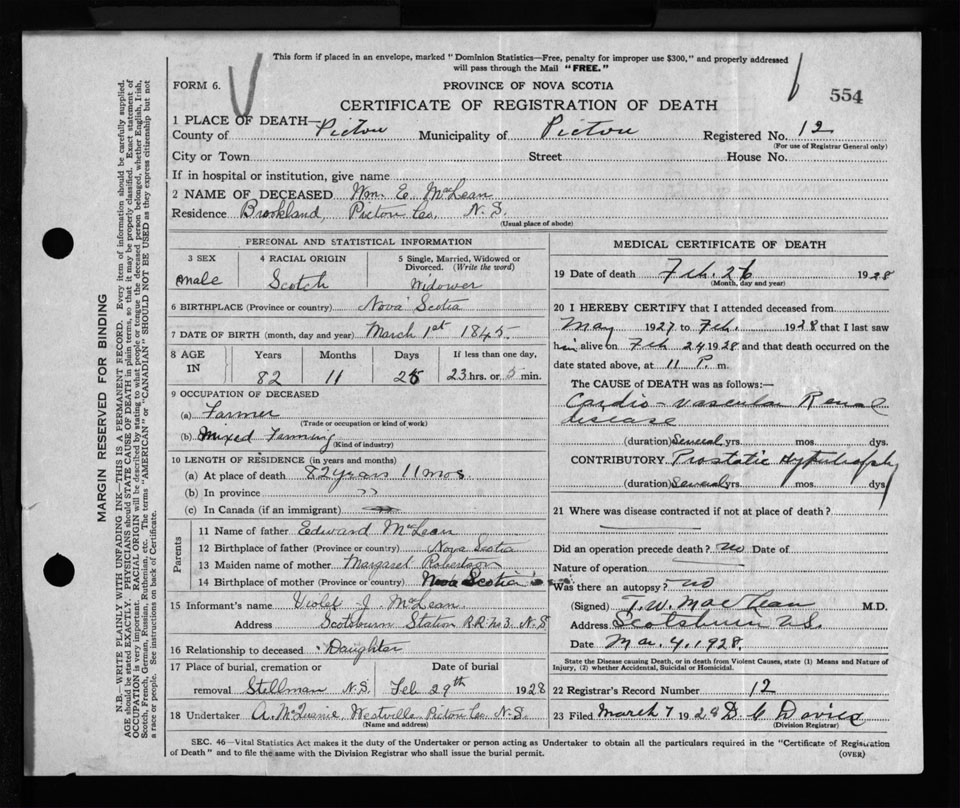 This form if placed in an envelope, marked "Dominion Statistics—Free, penalty for improper use $300," and properly addressed
will pass through the Mail "FREE."
FORM 6. PROVINCE OF NOVA SCOTIA 554
CERTIFICATE OF REGISTRATION OF DEATH
1 PLACE OF DEATH—
County of Pictou Municipality of Pictou Registered No. 12
(For use of Registrar General only)
City or Town Street House No.
If in hospital or institution, give name
2 NAME OF DECEASED Wm. E. McLean
Residence Brookland, Pictou Co. N.S.
(Usual place of abode)
PERSONAL AND STATISTICAL INFORMATION
3 SEX 4 RACIAL ORIGIN 5 Single, Married, Widowed or
Divorced. (Write the word)
male Scotch Widower
6 BIRTHPLACE (Province or country) Nova Scotia
7 DATE OF BIRTH (month, day and year) March 1st 1845.
8 AGE IN Years Months Days If less than one day,
82 11 25 23 hrs. or 5 min.
9 OCCUPATION OF DECEASED
(a) Farmer
(Trade or occupation or kind of work)
(b) Mixed Farming
(Kind of industry)
10 LENGTH OF RESIDENCE (in years and months)
(a) At place of death 82 years 11 mos
(b) In province " "
(c) In Canada (if an immigrant)
Parents
11 Name of father Edward McLean
12 Birthplace of father (Province or country) Nova Scotia
13 Maiden name of mother Margaret Robertson
14 Birthplace of mother (Province or country) Nova Scotia
15 Informant's name Violet J. McLean
Address Scotsburn Station R.R. No 3. N.S
16 Relationship to deceased Daughter
17 Place of burial, cremation or Date of burial
removal Stillman N.S. Feb 29th 1928
18 Undertaker A. McQuinie, Westville Pictou Co. N.S.
(Name and address)
MEDICAL CERTIFICATE OF DEATH
19 Date of death Feb. 26 1928
(Month, day and year)
20 I HEREBY CERTIFY that I attended deceased from
May 1927 to Feb. 1928 that I last saw
him alive on Feb 24 1928 and that death occurred on the
date stated above, at 11 P. m.
The CAUSE OF DEATH was as follows:—
Cardio-vascular Renal
disease
(duration) Several yrs. mos. dys.
CONTRIBUTORY Prostatic Hypertrophy
(duration) Several yrs. mos. dys.
21 Where was disease contracted if not at place of death?
Did an operation precede death? no Date of
Nature of operation
Was there an autopsy? no
(Signed) T. W. MacLean M.D.
Address Scotsburn N.S.
Date Mar. 4, 1928.
State the Disease causing Death, or in death from Violent Causes, state (1) Means and Nature of
Injury, (2) whether Accidental, Suicidal or Homicidal.
22 Registrar's Record Number 12
23 Filed March 7 1928 D C Davies
(Division Registrar)
SEC. 46—Vital Statistics Act makes it the duty of the Undertaker or person acting as Undertaker to obtain all the particulars required in the "Certificate of Registration
of Death" and to file the same with the Division Registrar who shall issue the burial permit. (OVER)
MARGIN RESERVED FOR BINDING
N.B.—WRITE PLAINLY WITH UNFADING INK—THIS IS A PERMANENT RECORD. Every item of information should be carefully supplied.
AGE should be stated EXACTLY. PHYSICIANS should STATE CAUSE OF DEATH in plain terms, so that it may be properly classified. Exact statement of
OCCUPATION is very important. RACIAL ORIGIN will be described by stating to what people or tongue the deceased person belonged, whether English, Irish,
Scotch, French, German, Russian, Ruthenian, etc. The terms "AMERICAN" or "CANADIAN" SHOULD NOT BE USED as they express citizenship but not
a race or people. See instructions on back of Certificate.